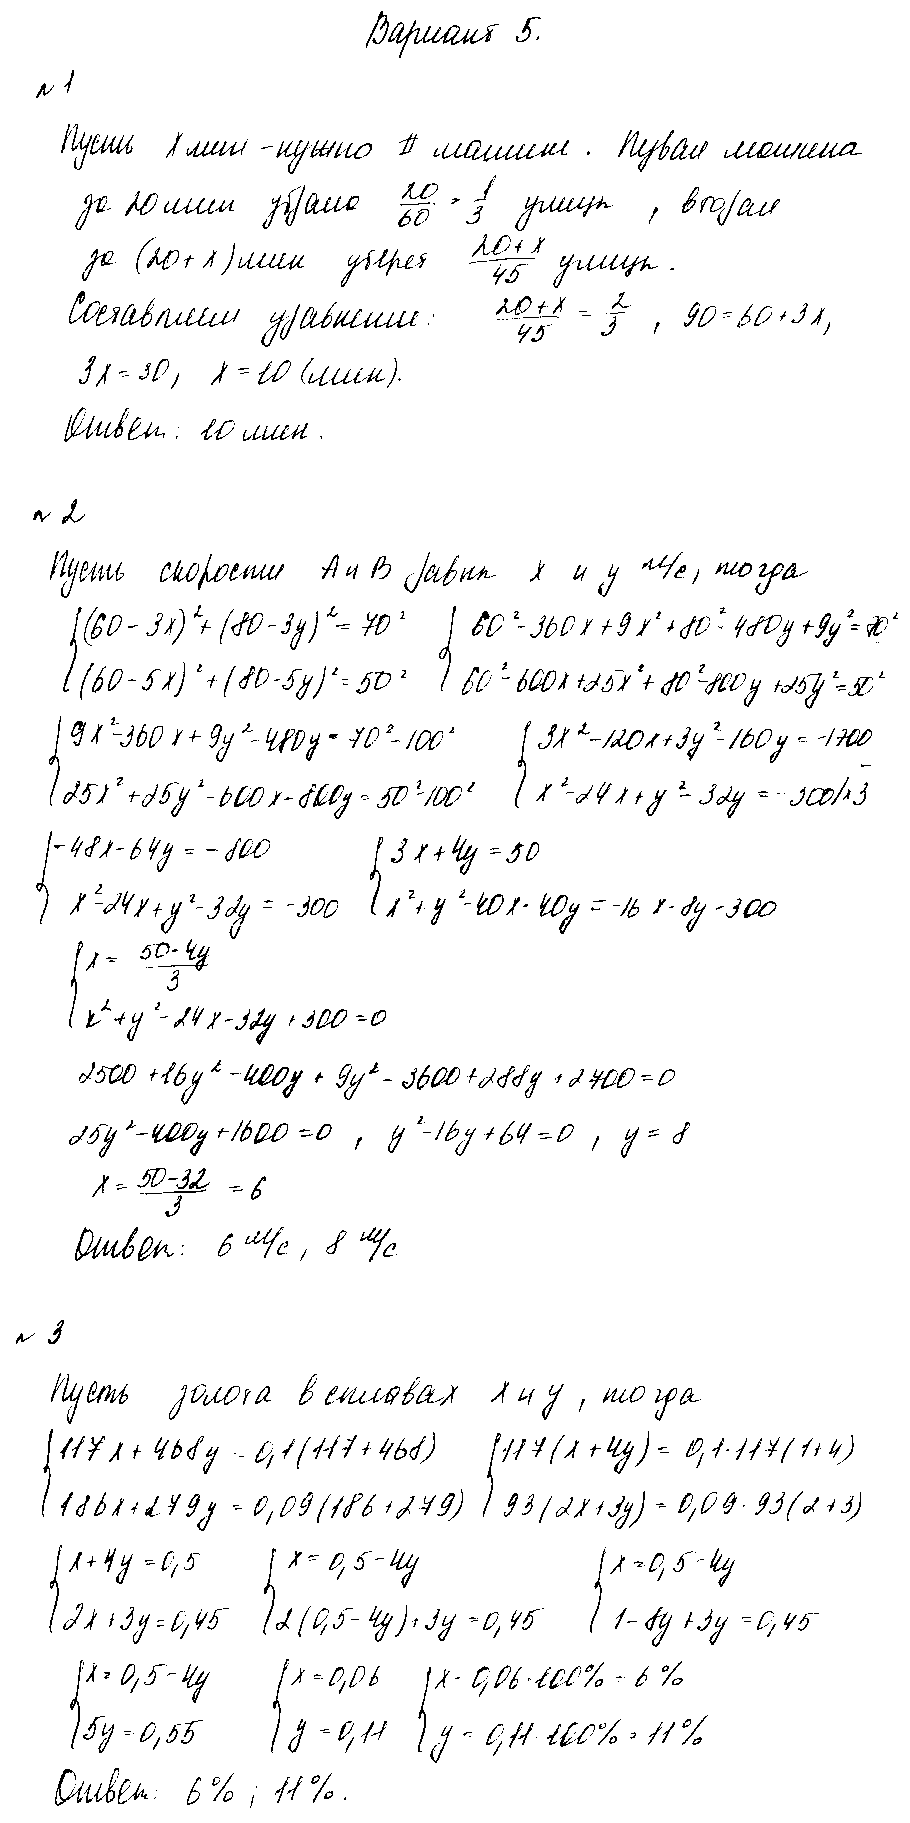 Вариант 5.
№ 1
Пусть x мин - нужно II машине. Первая машина
за 20 мин убрала 20/60 = 1/3 улицы, вторая
за (20+x) мин уберет (20+x)/45 улицы.
Составляем уравнение: (20+x)/45 = 2/3, 90=60+3x,
3x=30, x=10 (мин).
Ответ: 10 мин.
№ 2
Пусть скорости A и B равны x и y м/с, тогда
{(60-3x)²+(80-3y)²=70² {60²-360x+9x²+80²-480y+9y²=70²
{(60-5x)²+(80-5y)²=50² {60²-600x+25x²+80²-800y+25y²=50²
{9x²-360x+9y²-480y=70²-100² {3x²-120x+3y²-160y=-1700
{25x²+25y²-600x-800y=50²-100² {x²-24x+y²-32y=-300/×3
{-48x-64y=-800 {3x+4y=50
{x²-24x+y²-32y=-300 {x²+y²-40x-40y=-16x-8y-300
{x=(50-4y)/3
{x²+y²-24x-32y+300=0
2500+16y²-400y+9y²-3600+288y+2700=0
25y²-400y+1600=0, y²-16y+64=0, y=8
x=(50-32)/3=6
Ответ: 6 м/с, 8 м/с
№ 3
Пусть золота в сплавах x и y, тогда
{117x+468y=0,1(117+468) {117(x+4y)=0,1·117(1+4)
{186x+279y=0,09(186+279) {93(2x+3y)=0,09·93(2+3)
{x+4y=0,5 {x=0,5-4y {x=0,5-4y
{2x+3y=0,45 {2(0,5-4y)+3y=0,45 {1-8y+3y=0,45
{x=0,5-4y {x=0,06 {x=0,06·100%=6%
{5y=0,55 {y=0,11 {y=0,11·100%=11%
Ответ: 6%; 11%.